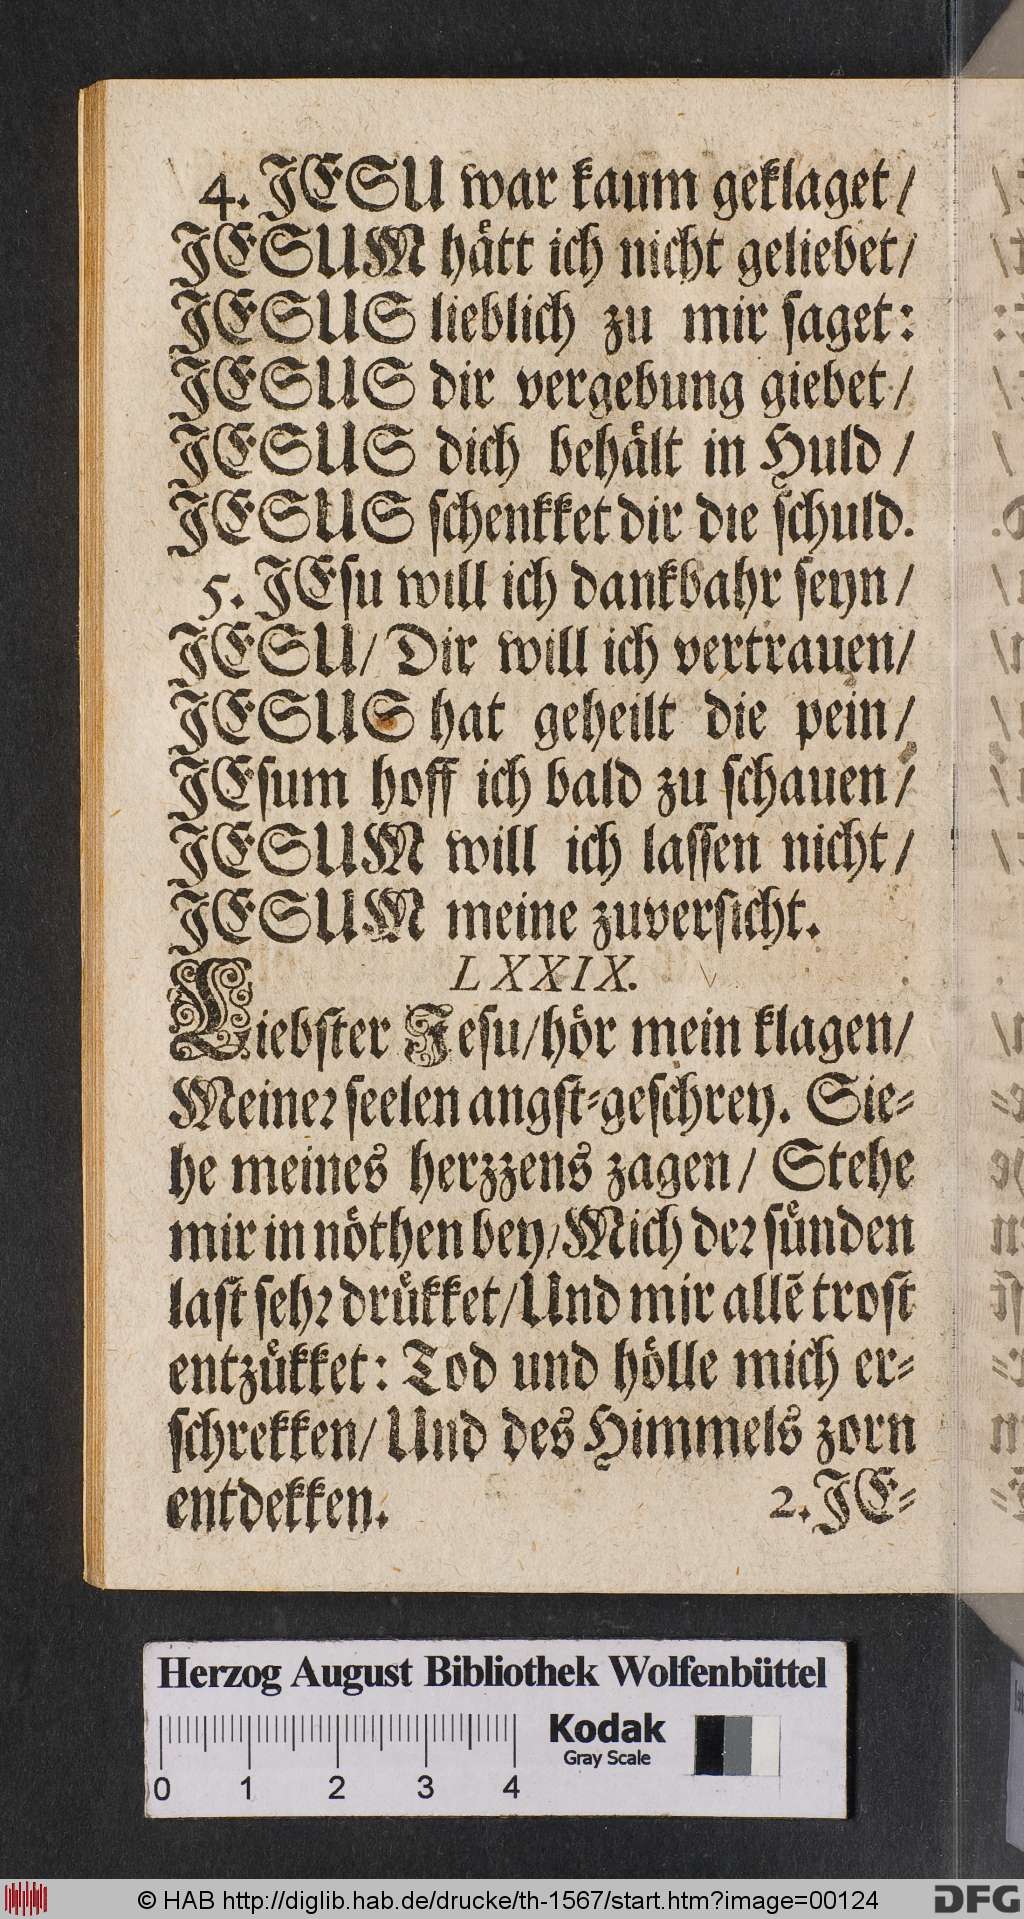 4. JESU war kaum geklaget /
JESUM hått ich nicht geliebet/
JESUS lieblich zu mir saget:
JESUS dir vergebung giebet /
JESUS dich behålt in Huld /
JESUS schenkket dir die schuld.
5. JEsu will ich dankbahr seyn /
JESU/ Dir will ich vertrauen/
JESUS hat geheilt die pein /
JEsum hoff ich bald zu schauen /
JESUM will ich lassen nicht /
JESUM meine zuversicht.
LXXIX.
Liebster Jesu/hör mein klagen/
Meiner seelen angst-geschrey. Sie-
he meines herzzens zagen/ Stehe
mir in nöthen bey/Mich der sünden
last sehr drükket/Und mir allẽ trost
entzükket: Tod und hölle mich er-
schrekken/ Und des Himmels zorn
entdekken.
2. JE-
Herzog August Bibliothek Wolfenbüttel
Kodak
Gray Scale
0 1 2 3 4
© HAB http://diglib.hab.de/drucke/th-1567/start.htm?image=00124
DFG